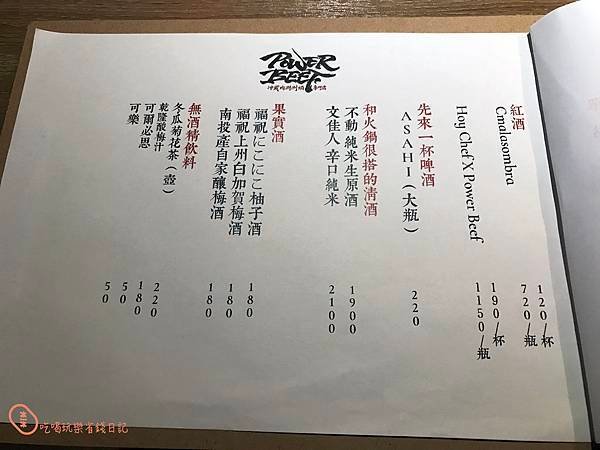 POWER
BEEF
紅酒
Cmalasombra 120/杯 720/瓶
Hoy Chef X Power Beef 190/杯 1150/瓶
先來一杯啤酒
ASAHI(大瓶) 220
和火鍋很搭的清酒
不動 純米生原酒 1900
文佳人 辛口純米 2100
果實酒
福祝にこにこ柚子酒 180
福祝上州白加賀梅酒 180
南投產自家釀梅酒 180
無酒精飲料
冬瓜菊花茶(壺) 220
乾隆酸梅汁 180
可爾必思 50
可樂 50
吃喝玩樂省錢日記